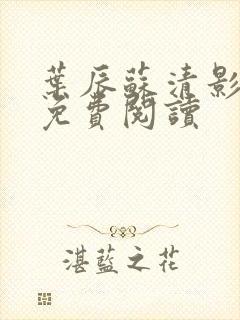 葉辰蘇清影
免費閱讀
湛藍之花